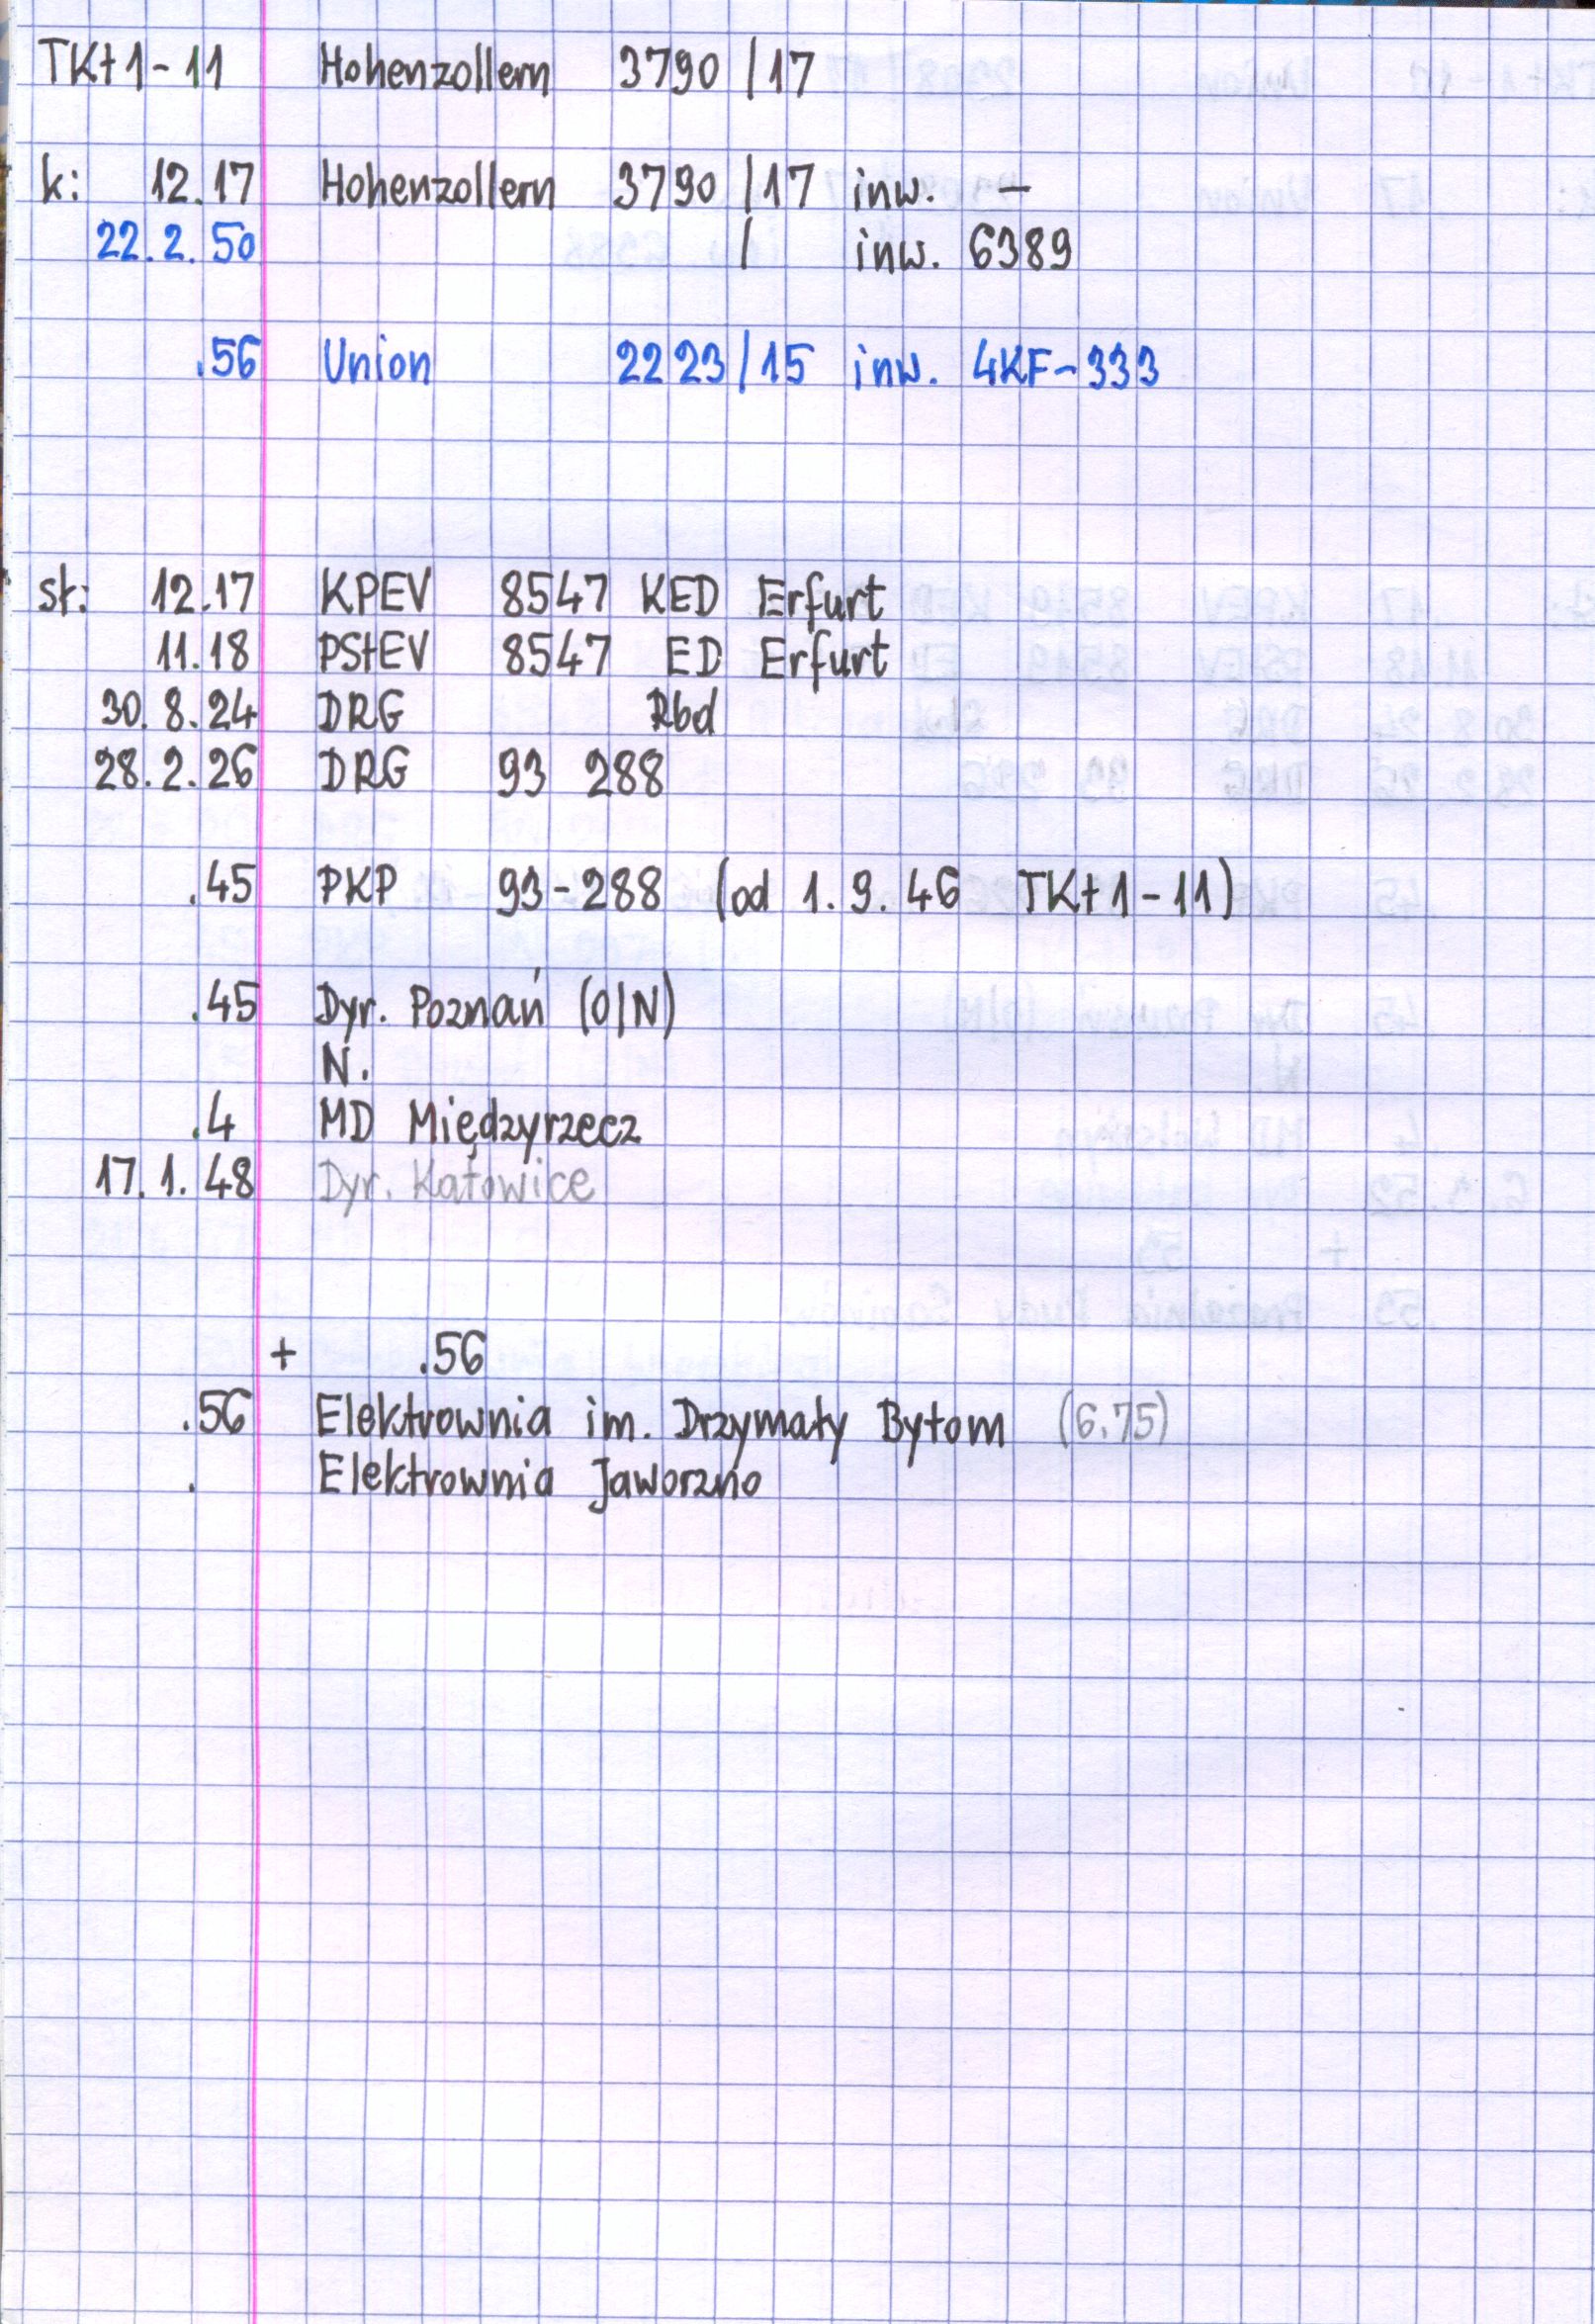 TKt1-11 Hohenzollern 3790/17
k: 12.17 Hohenzollern 3790/17 inw. -
22.2.50 / inw. 6389
.56 Union 2223/15 inw. 4KF-333
st: 12.17 KPEV 8547 KED Erfurt
11.18 PStEV 8547 ED Erfurt
30.8.24 DRG Rbd
28.2.26 DRG 93 288
.45 PKP 93-288 (od 1.9.46 TKt1-11)
.45 Dyr. Poznań (O/N)
N.
.4 MD Międzyrzecz
17.1.48 Dyr. Katowice
+ .56
.56 Elektrownia im. Drzymały Bytom (6.75)
. Elektrownia Jaworzno